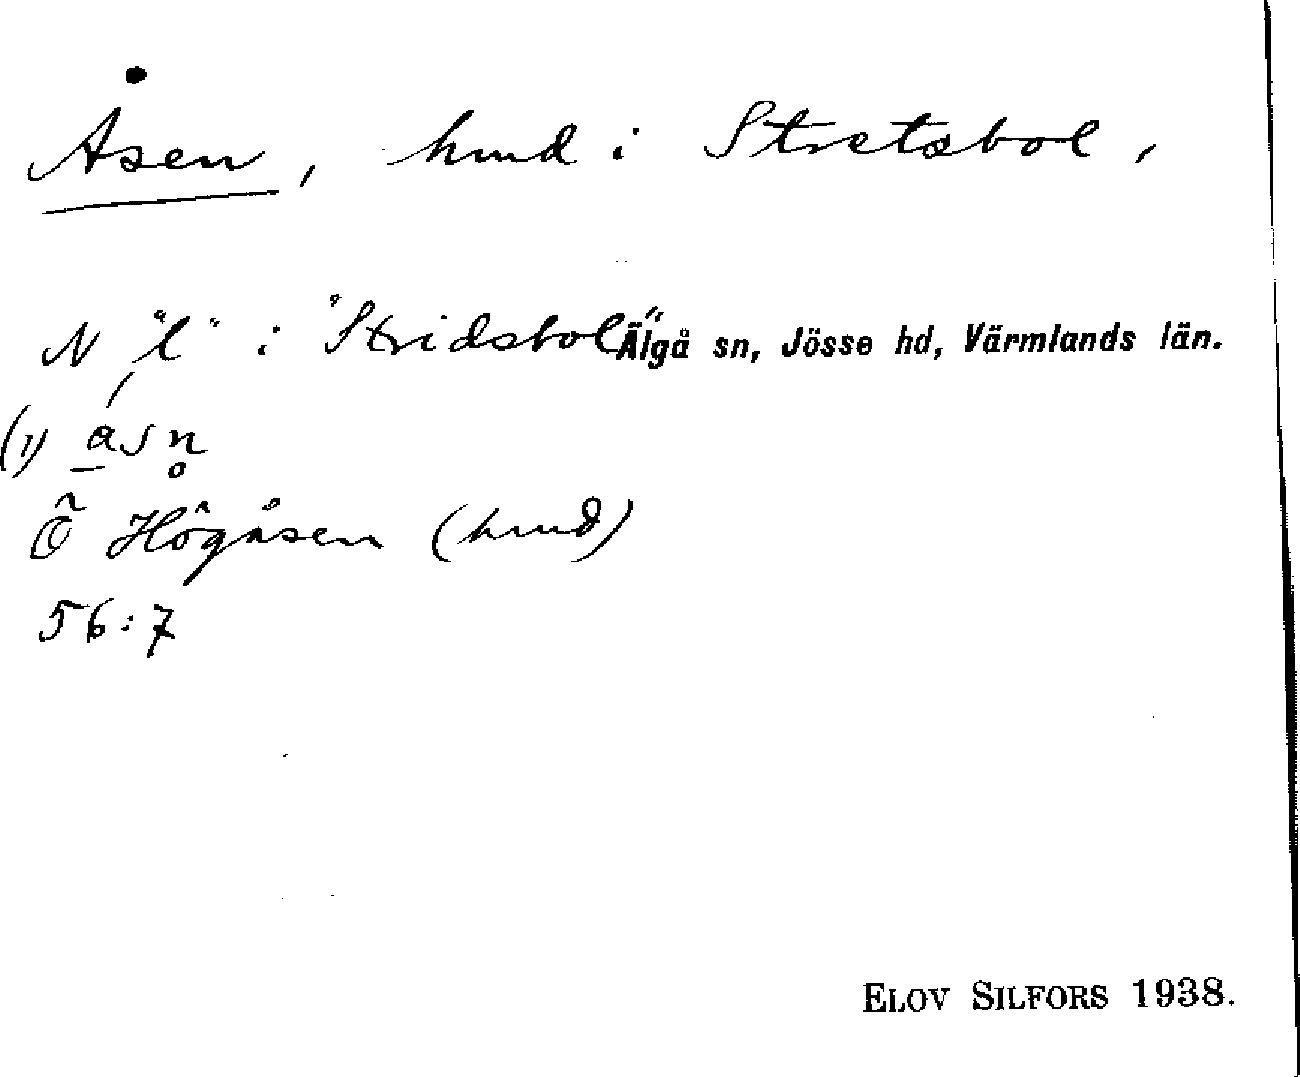 Åsen, hmd i Stretsbol,
N "l" i "Stridsbol" Älgå sn, Jösse hd, Värmlands län.
(1) ásn̥
Õ Högåsen (hmd)
56:7
ELOV SILFORS 1938.